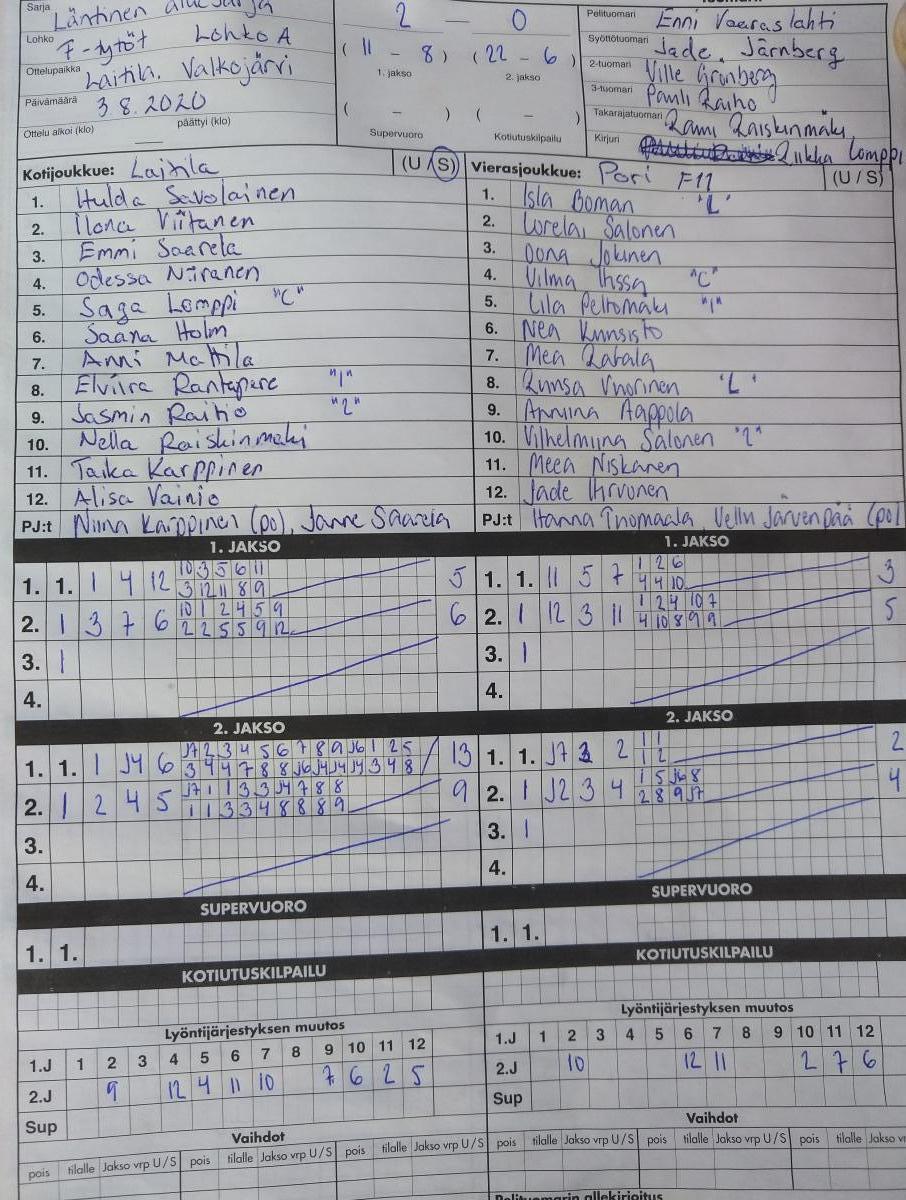 Sarja Läntinen aluesarja
Lohko F-tytöt Lohko A
Ottelupaikka Laitila, Valkojärvi
Päivämäärä 3.8.2020
Ottelu alkoi (klo) päättyi (klo)
2 — 0
( 11 – 8 ) ( 22 – 6 )
1. jakso 2. jakso
( – ) ( – )
Supervuoro Kotiutuskilpailu
Pelituomari Enni Vaaraslahti
Syöttötuomari Jade Järnberg
2-tuomari Ville Grönberg
3-tuomari Pauli Raiho
Takarajatuomari Rami Raiskinmäki
Kirjuri Riikka Lomppi
Kotijoukkue: Laitila (U / S)
1. Hulda Savolainen
2. Ilona Viitanen
3. Emmi Saarela
4. Odessa Niranen
5. Saga Lomppi "C"
6. Saana Holm
7. Anni Mattila
8. Elviira Rantapere "1"
9. Jasmin Raitio "2"
10. Nella Raiskinmäki
11. Taika Karppinen
12. Alisa Vainio
PJ:t Niina Karppinen (po), Janne Saarela
Vierasjoukkue: Pori F11 (U / S)
1. Isla Boman "L"
2. Lorelai Salonen
3. Oona Jokinen
4. Vilma Ihssa "C"
5. Lila Peltomäki "1"
6. Nea Kunsisto
7. Mea Rabala
8. Runsa Vuorinen "L"
9. Anniina Aappola
10. Vilhelmiina Salonen "2"
11. Meea Niskanen
12. Jade Ihrvonen
PJ:t Hanna Tuomaala, Vellu Järvenpää (po)
1. JAKSO
1. 1. 1 4 12 10 3 5 6 11 5
3 12 11 8 9
2. 1 3 7 6 10 1 2 4 5 9 6
2 2 5 5 9 12
3. 1
4.
1. JAKSO
1. 1. 11 5 7 1 2 6 3
4 4 10
2. 1 12 3 11 1 2 4 10 7 5
4 10 8 9 9
3. 1
4.
2. JAKSO
1. 1. 1 J4 6 J7 2 3 4 5 6 7 8 9 J6 1 2 5 13
3 4 4 7 8 8 J6 J4 J4 J4 3 4 8
2. 1 2 4 5 J7 1 1 3 3 J4 7 8 8 9
1 1 3 3 4 8 8 8 9
3.
4.
2. JAKSO
1. 1. J7 2 1 1 2
1 2
2. 1 J2 3 4 1 5 J6 8 4
2 8 9 J7
3. 1
4.
SUPERVUORO
1. 1.
SUPERVUORO
1. 1.
KOTIUTUSKILPAILU
KOTIUTUSKILPAILU
Lyöntijärjestyksen muutos
1.J 1 2 3 4 5 6 7 8 9 10 11 12
2.J 9 12 4 11 10 7 6 2 5
Sup
Lyöntijärjestyksen muutos
1.J 1 2 3 4 5 6 7 8 9 10 11 12
2.J 10 12 11 2 7 6
Sup
Vaihdot
pois tilalle Jakso vrp U / S pois tilalle Jakso vrp U / S pois tilalle Jakso vrp U / S
Vaihdot
pois tilalle Jakso vrp U / S pois tilalle Jakso vrp U / S pois tilalle Jakso
Pelituomarin allekirjoitus